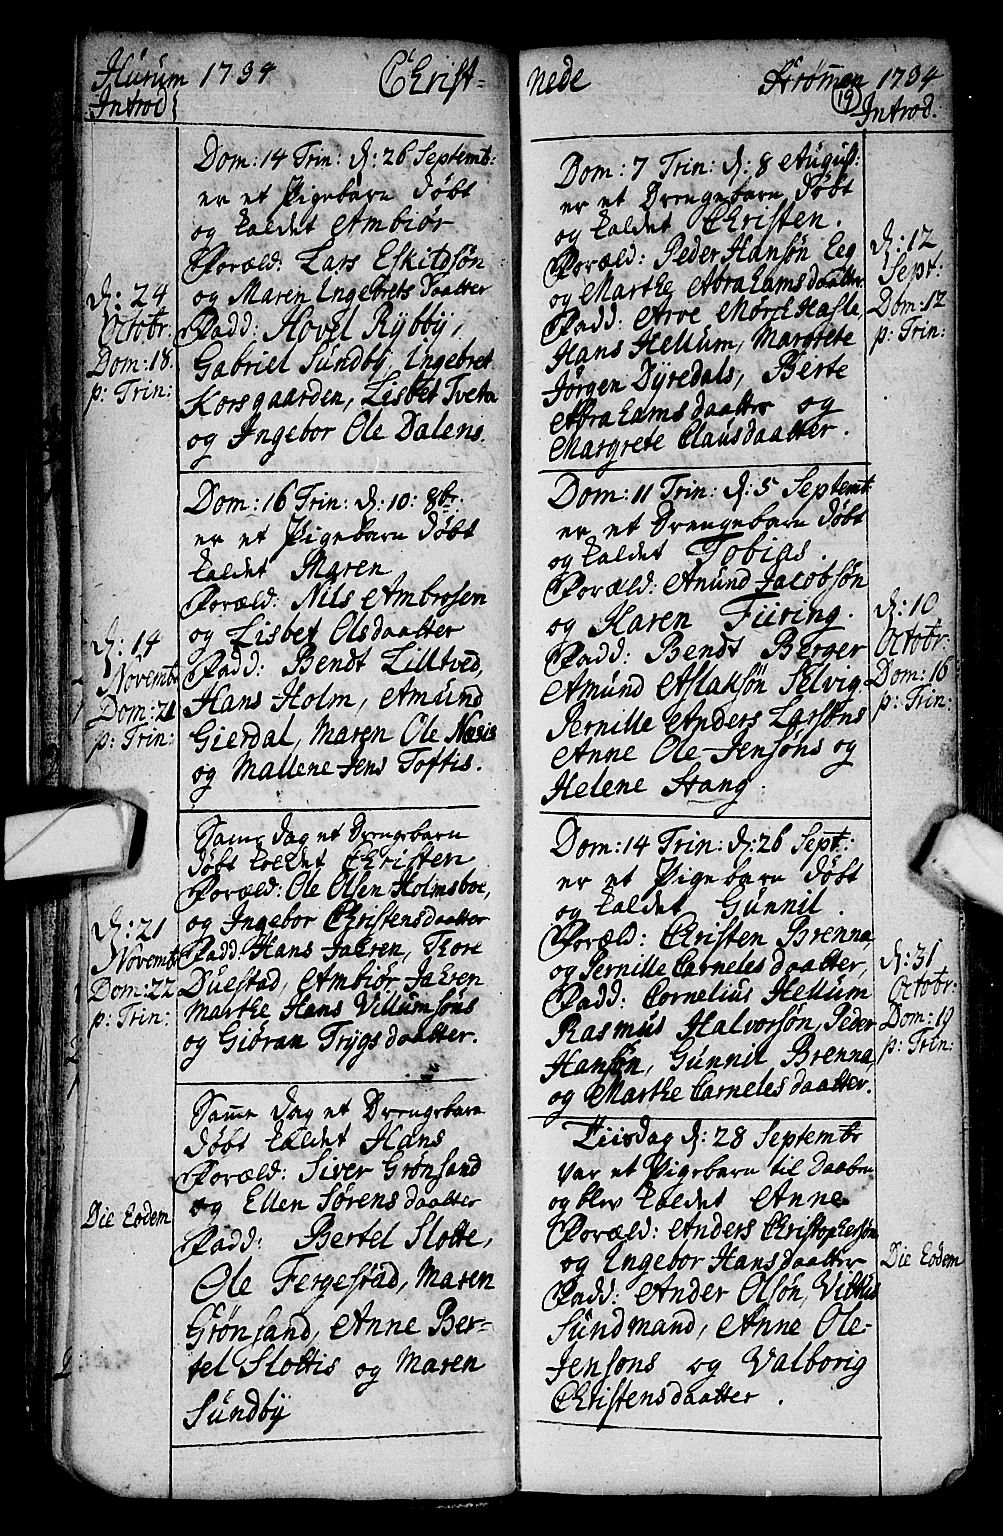 Hurum 1734 Christ-
Introd:
Dom: 14 Trin: d: 26 Septemb:
er et Pigebarn døbt
og kaldet Ambiør
Foræld: Lars Eskildsøn
og Maren Ingebrets daatter
Fadd: Hovel Rÿbbÿ,
Gabriel Sundbÿ, Ingebret
Korsgaarden, Lisbet Tveta
og Ingebor Ole Dalens.
d: 24
Octobr:
Dom: 18.
p: Trin:
Dom: 16 Trin: d: 10: 8br:
er et Pigebarn døbt
kaldet Maren
Foræld: Nils Ambrosen
og Lisbet Olsdaatter
Fadd: Bendt Lilltved,
Hans Holm, Amund
Gierdal, Maren Ole Næsis
og Mallene Jens Toftis.
d: 14
Novembr
Dom: 21
p: Trin:
Samme dag et Drengebarn
døbt kaldet Christen
Foræld: Ole Olsen Holmsboe,
og Ingebor Christensdaatter
Fadd Hans Jahren, Thore
Duestad, Ambiør Jahren
Marthe Hans Villumsøns
og Giøran Trygsdaatter.
d: 21
Novembr
Dom: 22
p: Trin:
Samme dag et Drengebarn
døbt kaldet Hans
Foræld: Siver Grønsand
og Ellen Sørensdaatter
Fadd: Bertel Slotte,
Ole Fergestad, Maren
Grønsand, Anne Ber-
tel Slottis og Maren
Sundbÿ
Die Eodem
nede Strømmen 1734
19
Introd.
Dom: 7 Trin: d: 8 August:
er et Drengebarn døbt
og kaldet Christen.
Foræld: Peder Hansøn Eeg
og Marthe Abrahamsdaatter
Fadd: Arve Mørch Hasle
Hans Hellum, Margrete
Jørgen Dÿredals, Berte
Abrahamsdaatter og
Margrete Clausdaatter.
d: 12
Sept:
Dom: 12
p: Trin:
Dom: 11 Trin: d: 5 Septembr
er et Drengebarn døbt
og kaldet Tobias.
Foræld: Anund Jacobsøn
og Karen Fiiring.
Fadd: Bendt Berger
Amund Aslaksøn Selvig
Pernille Anders Larsøns
Anne Ole-Jensøns og
Helene Stang
d: 10
Octobr:
Dom: 16
p: Trin:
Dom: 14 Trin: d: 26 Sept:
er et Pigebarn døbt
og kaldet Gunnil.
Foræld: Christen Brenna
og Pernille Carnelesdaatter,
Fadd: Cornelius Hellum
Rasmus Halvorsøn, Peder
Hansøn, Gunnil Brenna,
og Marthe Carnelesdaatter.
d: 31
Octobr:
Dom: 19
p: Trin:
Tiisdag d: 28 Septembr
var et Pigebarn til Daaben
og blev kaldet Anne
Foræld: Anders Christophersøn
og Ingebor Hansdaatter
Fadd: Ander Olsøn, Vittus
Sundmand, Anne Ole-
Jensøns og Valborig
Christensdaatter.
Die Eodem